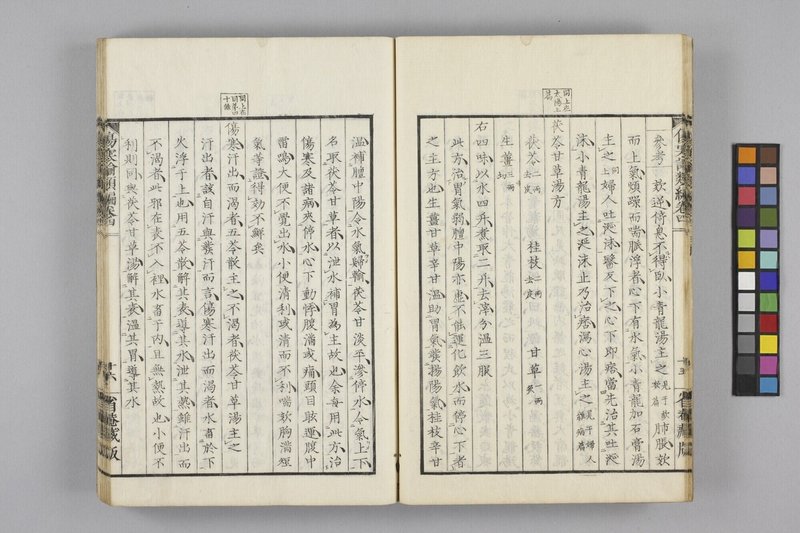 參考 欬逆倚息不得臥小青龍湯主之 見于欬
於篇 肺脹欬
而上氣煩躁而喘脈浮者心下有水氣小青龍加石膏湯
主之 同上 婦人吐涎沫醫反下之心下卽痞當先治其吐涎
沫小青龍湯主之涎沫止乃治痞瀉心湯主之 見于婦人
雜病篇
茯苓甘草湯方
茯苓 二兩
去皮 桂枝 二兩
去皮 甘草 一兩
炙
生薑 三兩
切
右四味以水四升煮取二升去滓分溫三服
此方治胃氣弱膻中陽亦憊不能運化飲水而停心下者
之主方也生薑甘草辛甘溫助胃氣發揚陽氣桂枝辛甘
傷寒論類編卷四
溫補膻中陽令水氣歸輸茯苓甘淡平滲停水令氣上下
名取茯苓甘草者以泄水補胃爲主故也余每用此方治
傷寒及諸病夾停水心下動悸腹滿或痛頭目眩運腹中
雷鳴大便不覺出水小便清利或清而不利喘欬胸滿短
氣等證得効不鮮矣
傷寒汗出而渴者五苓散主之不渴者茯苓甘草湯主之
汗出者該自汗與發汗而言傷寒汗出而渴者水畜於下
火浮于上也用五苓散解其表導其水泄其熱雖汗出而
不渴者此邪在表不入裡水畜于內且無熱故也小便不
利則同與茯苓甘草湯解其表溫其胃導其水
傷寒論類編卷四
十六